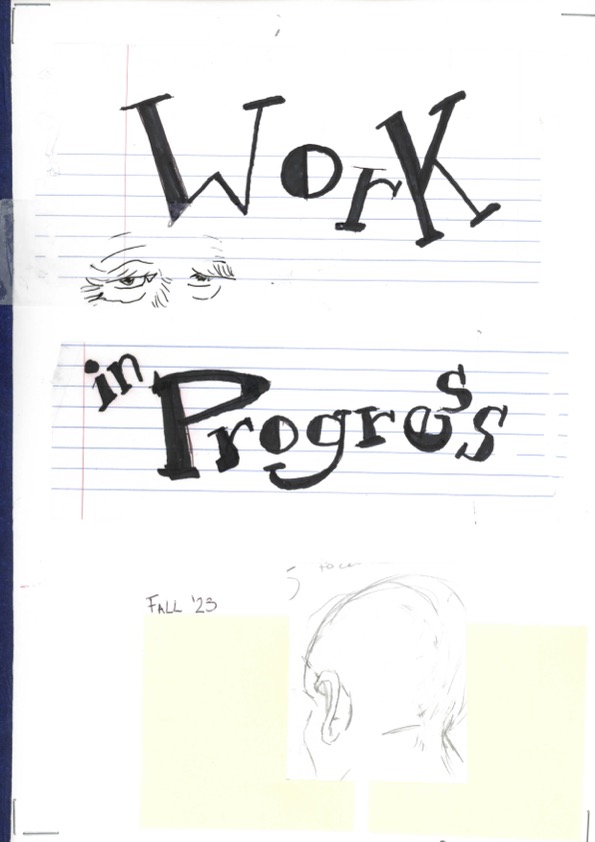 Work
in Progress
FALL '23